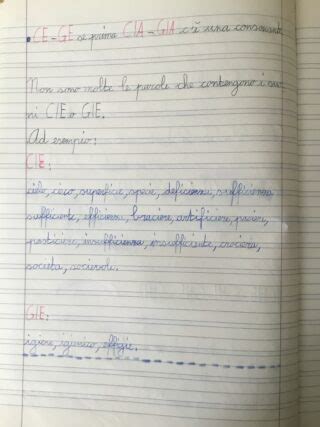 • CE - GE se prima CIA - GIA c'è una consonante
Non sono molte le parole che contengono i suo
ni CIE o GIE.
Ad esempio:
CIE:
cielo, cieco, superficie, specie, deficienza, sufficienza
sufficiente, efficienza, braciere, artificiere, paciere,
pasticciere, insufficienza, insufficiente, crociera,
società, socievole.
GIE:
igiene, igienico, effigie.